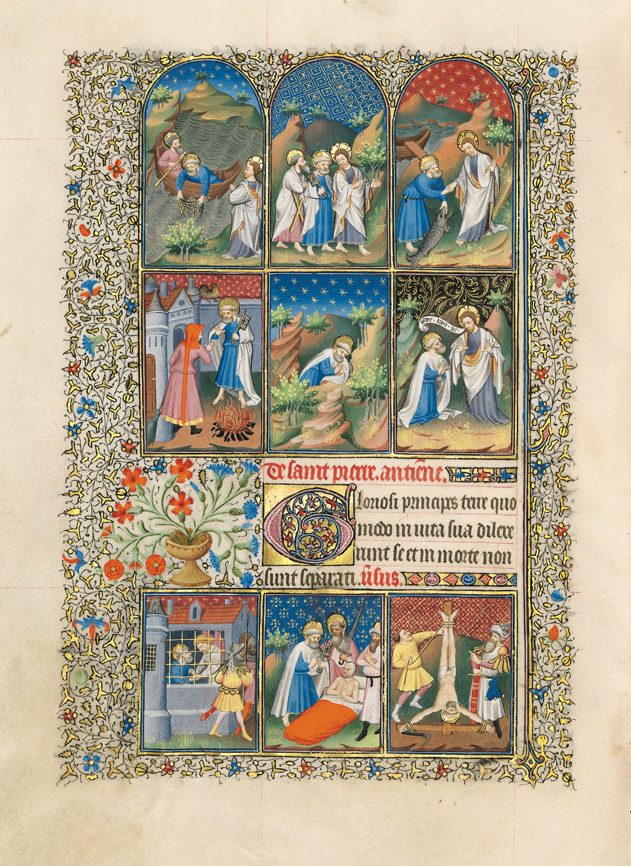 De saint pierre. antiene.
Gloriosi principes terre quo
modo in uita sua dilexe
runt se et in morte non
sunt separati. u̅sus.